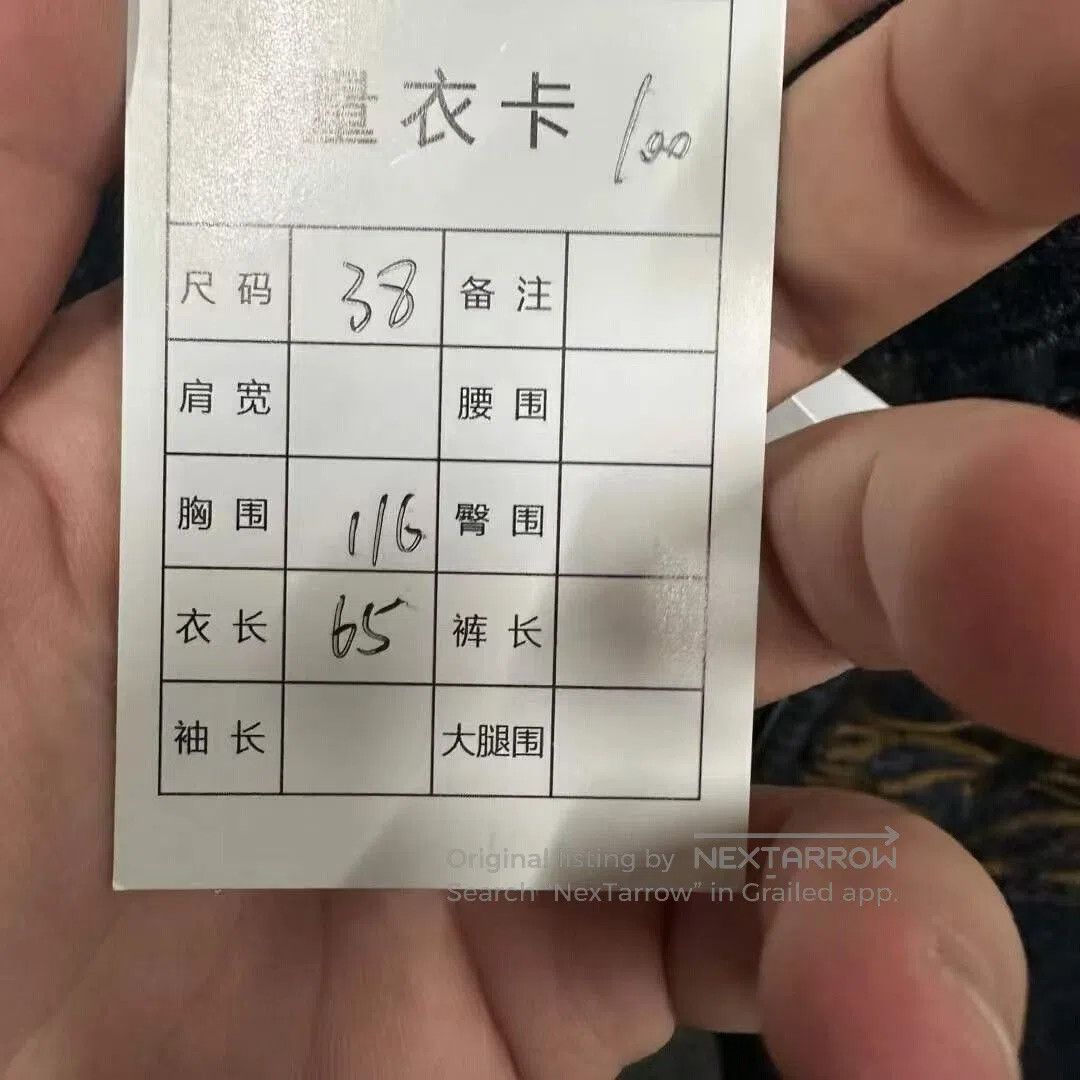 量衣卡 100
尺码 38 备注
肩宽 腰围
胸围 116 臀围
衣长 65 裤长
袖长 大腿围
Original listing by NEXTARROW
Search "NexTarrow" in Grailed app.